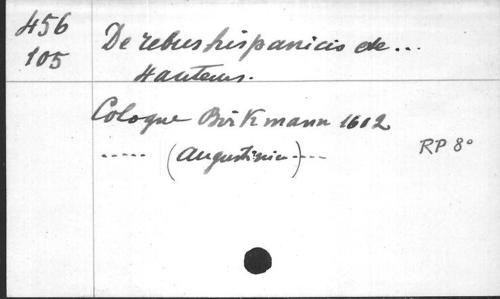 456
105
De rebus hispanicis de...
Cologne Birkmann 1602
..... (Augustinien) ....
RP 8°